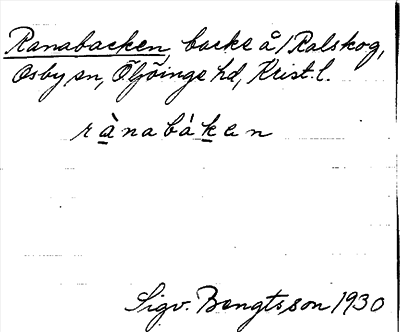 Ranabacken, backe å / Ralskog,
Osby sn, Ö. Göinge hd, Krist. l.
rànabáken
Sigv. Bengtsson 1930